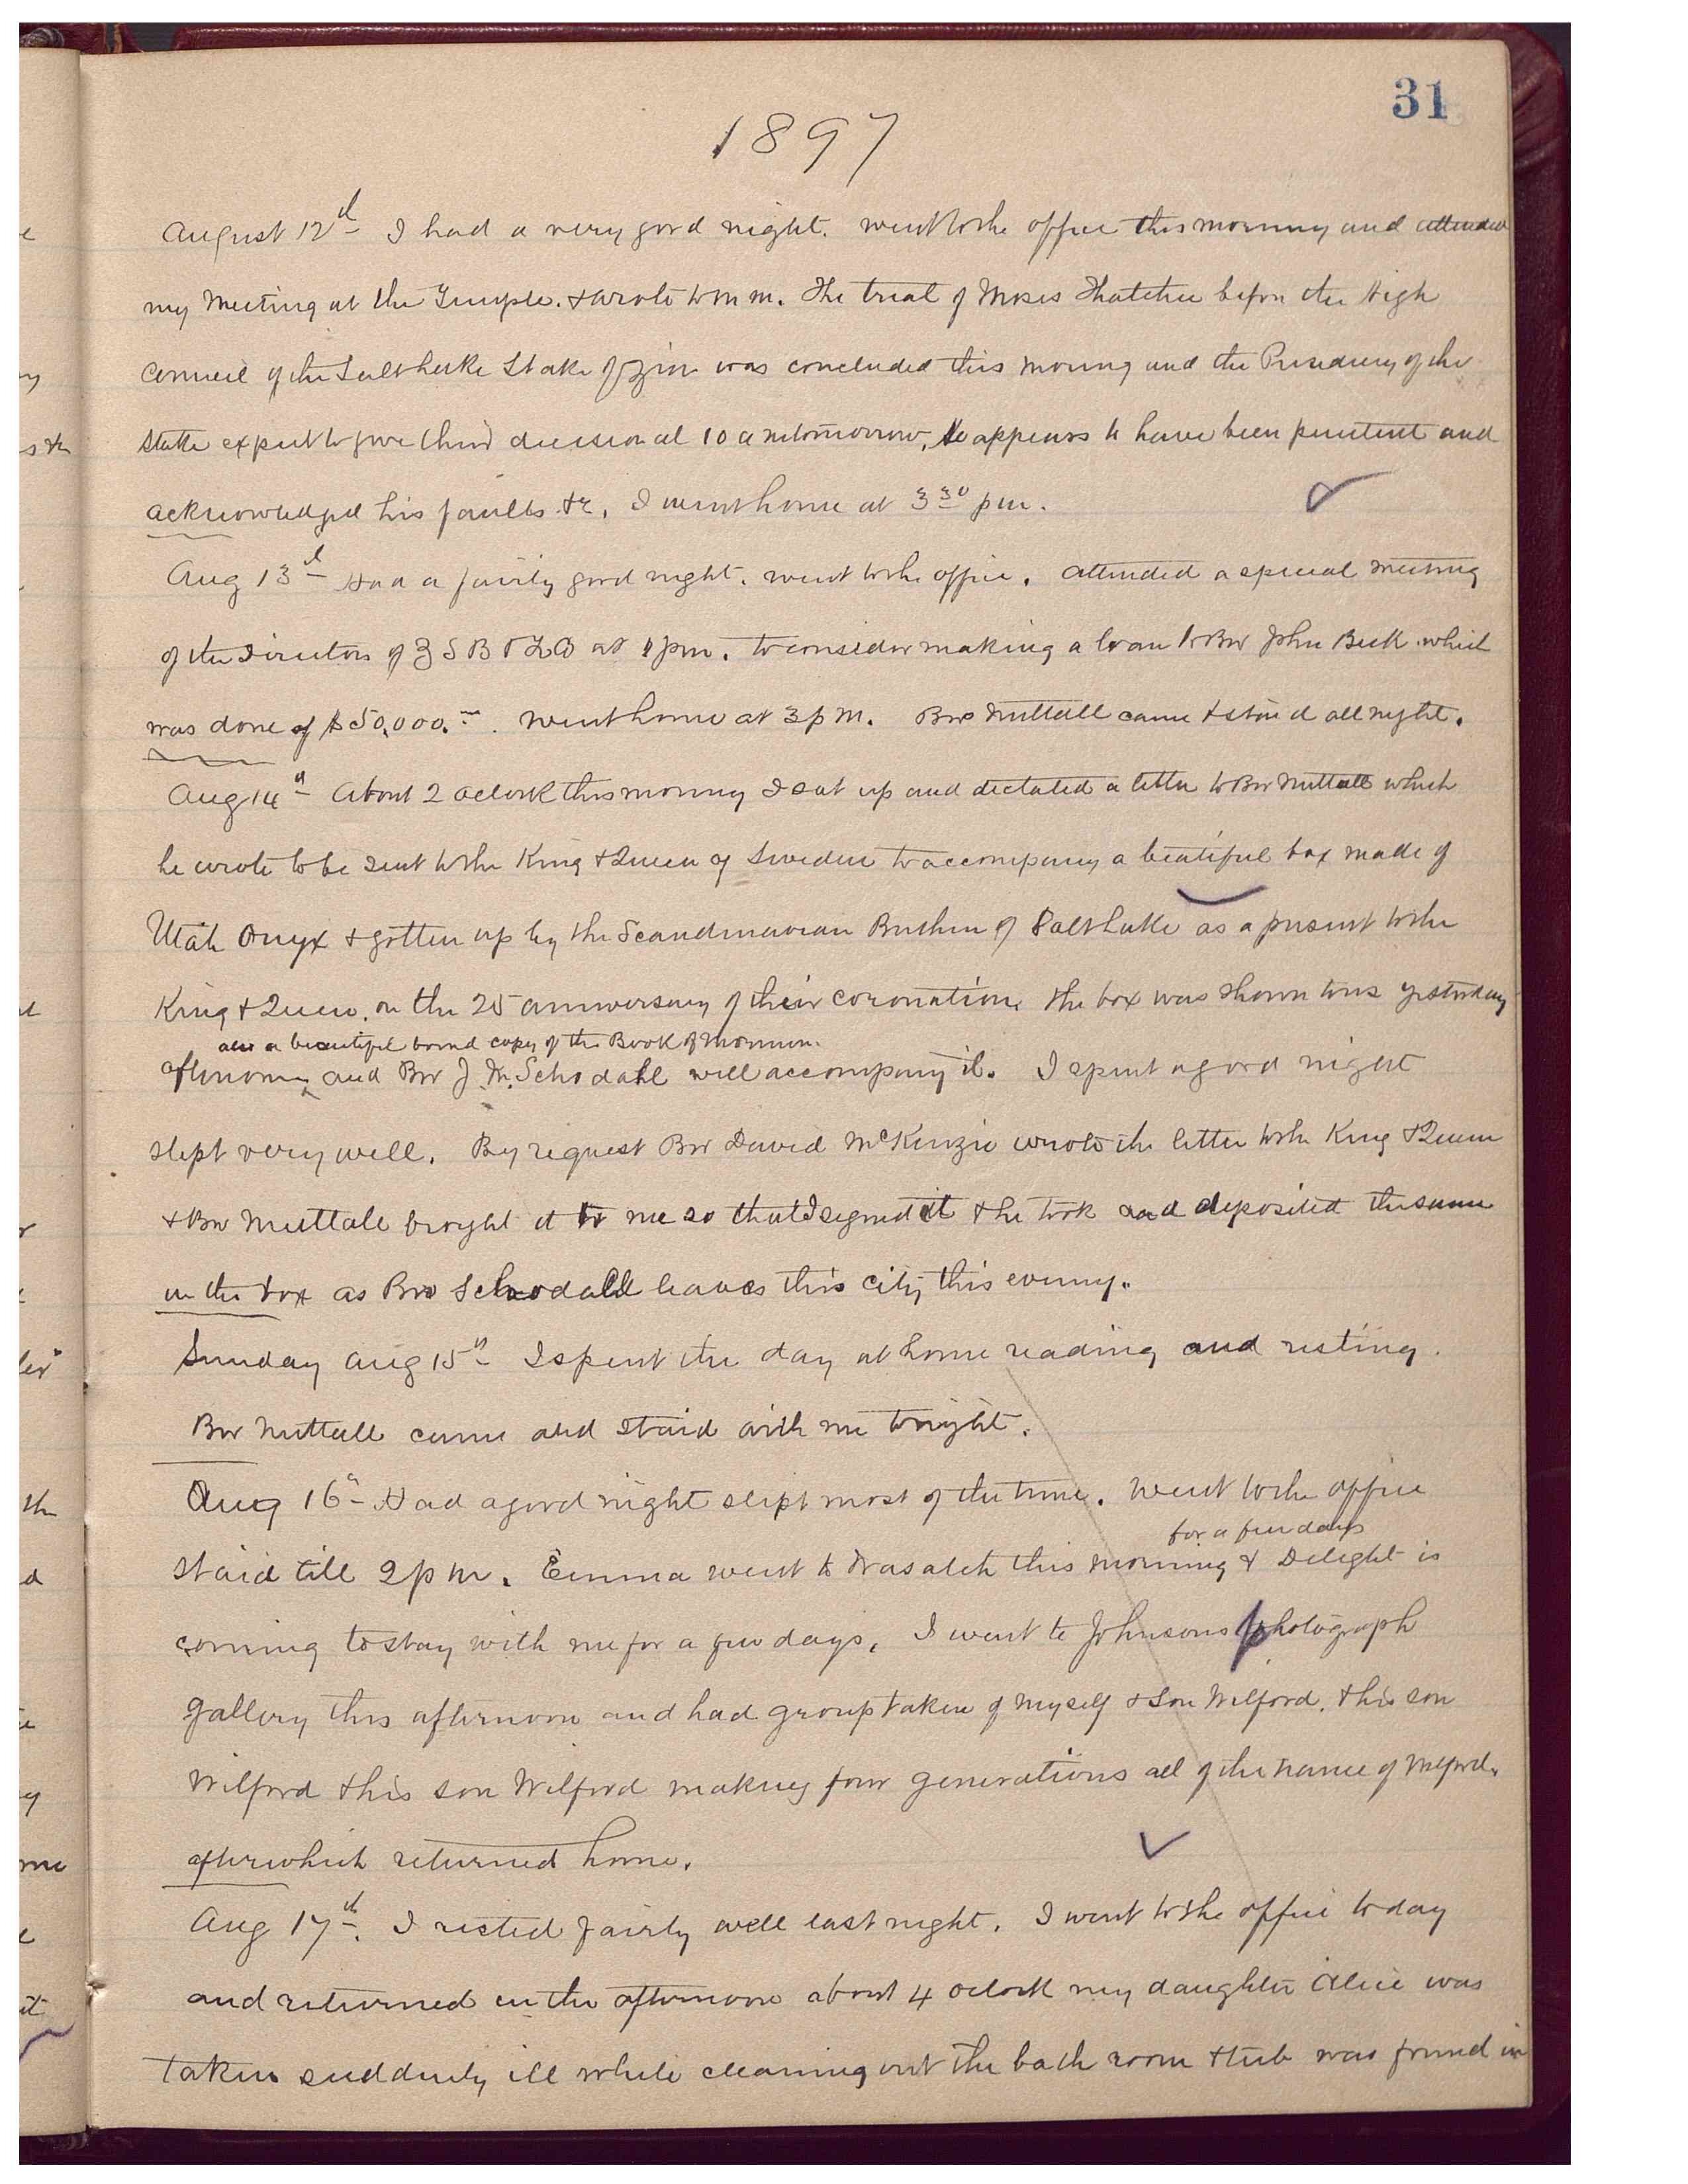 31
1897
August 12th I had a very good night. went to the office this morning and attended
my meeting at the Temple. & wrote to M M. The trial of Moses Thatcher before the High
Council of the Salt Lake Stake of Zion was concluded this morning and the Presidency of the
Stake expect to give their decision at 10 a m tomorrow, He appears to have been penitent and
acknowledged his faults &c, I went home at 3 30 pm.
Aug 13th Had a fairly good night. went to the office. attended a special meeting
of the Directors of Z S B & T Co at 1 pm. to consider making a loan to Bro John Beck which
was done of $50,000.- . went home at 3 p m. Bro Nuttall came & staid all night.
Aug 14th About 2 oclock this morning I sat up and dictated a letter to Bro Nuttall which
he wrote to be sent to the King & Queen of Sweden to accompany a beatiful box made of
Utah Onyx & gotten up by the Scandinavian Brethren of Salt Lake as a present to the
King & Queen. on the 25 anniversary of their coronation. the box was shown to us yesterday
also a beautiful bound copy of the Book of Mormon.
afternoon and Bro J. M. Schodahl will accompany it. I spent a good night
slept very well. By request Bro David McKenzie wrote the letter to the King & Queen
& Bro Nuttall brought it to me so that I signed it & he took and deposited the same
in the box as Bro Schodahl leaves this city this evening.
Sunday Aug 15th I spent the day at home reading and resting.
Bro Nuttall came and staid with me tonight.
Aug 16th Had a good night slept most of the time. Went to the office
for a few days
staid till 2 p m. Emma went to Wasatch this morning & Delight is
coming to stay with me for a few days. I went to Johnsons photograph
gallery this afternoon and had group taken of myself & Son Wilford. & his son
Wilford & his son Wilford making four generations all of the name of Wilford.
after which returned home.
Aug 17th. I rested fairly well last night. I went to the office to day
and returned in the afternoon about 4 oclock my daughter Alice was
taken suddenly ill while cleaning out the bath room & tub was found in